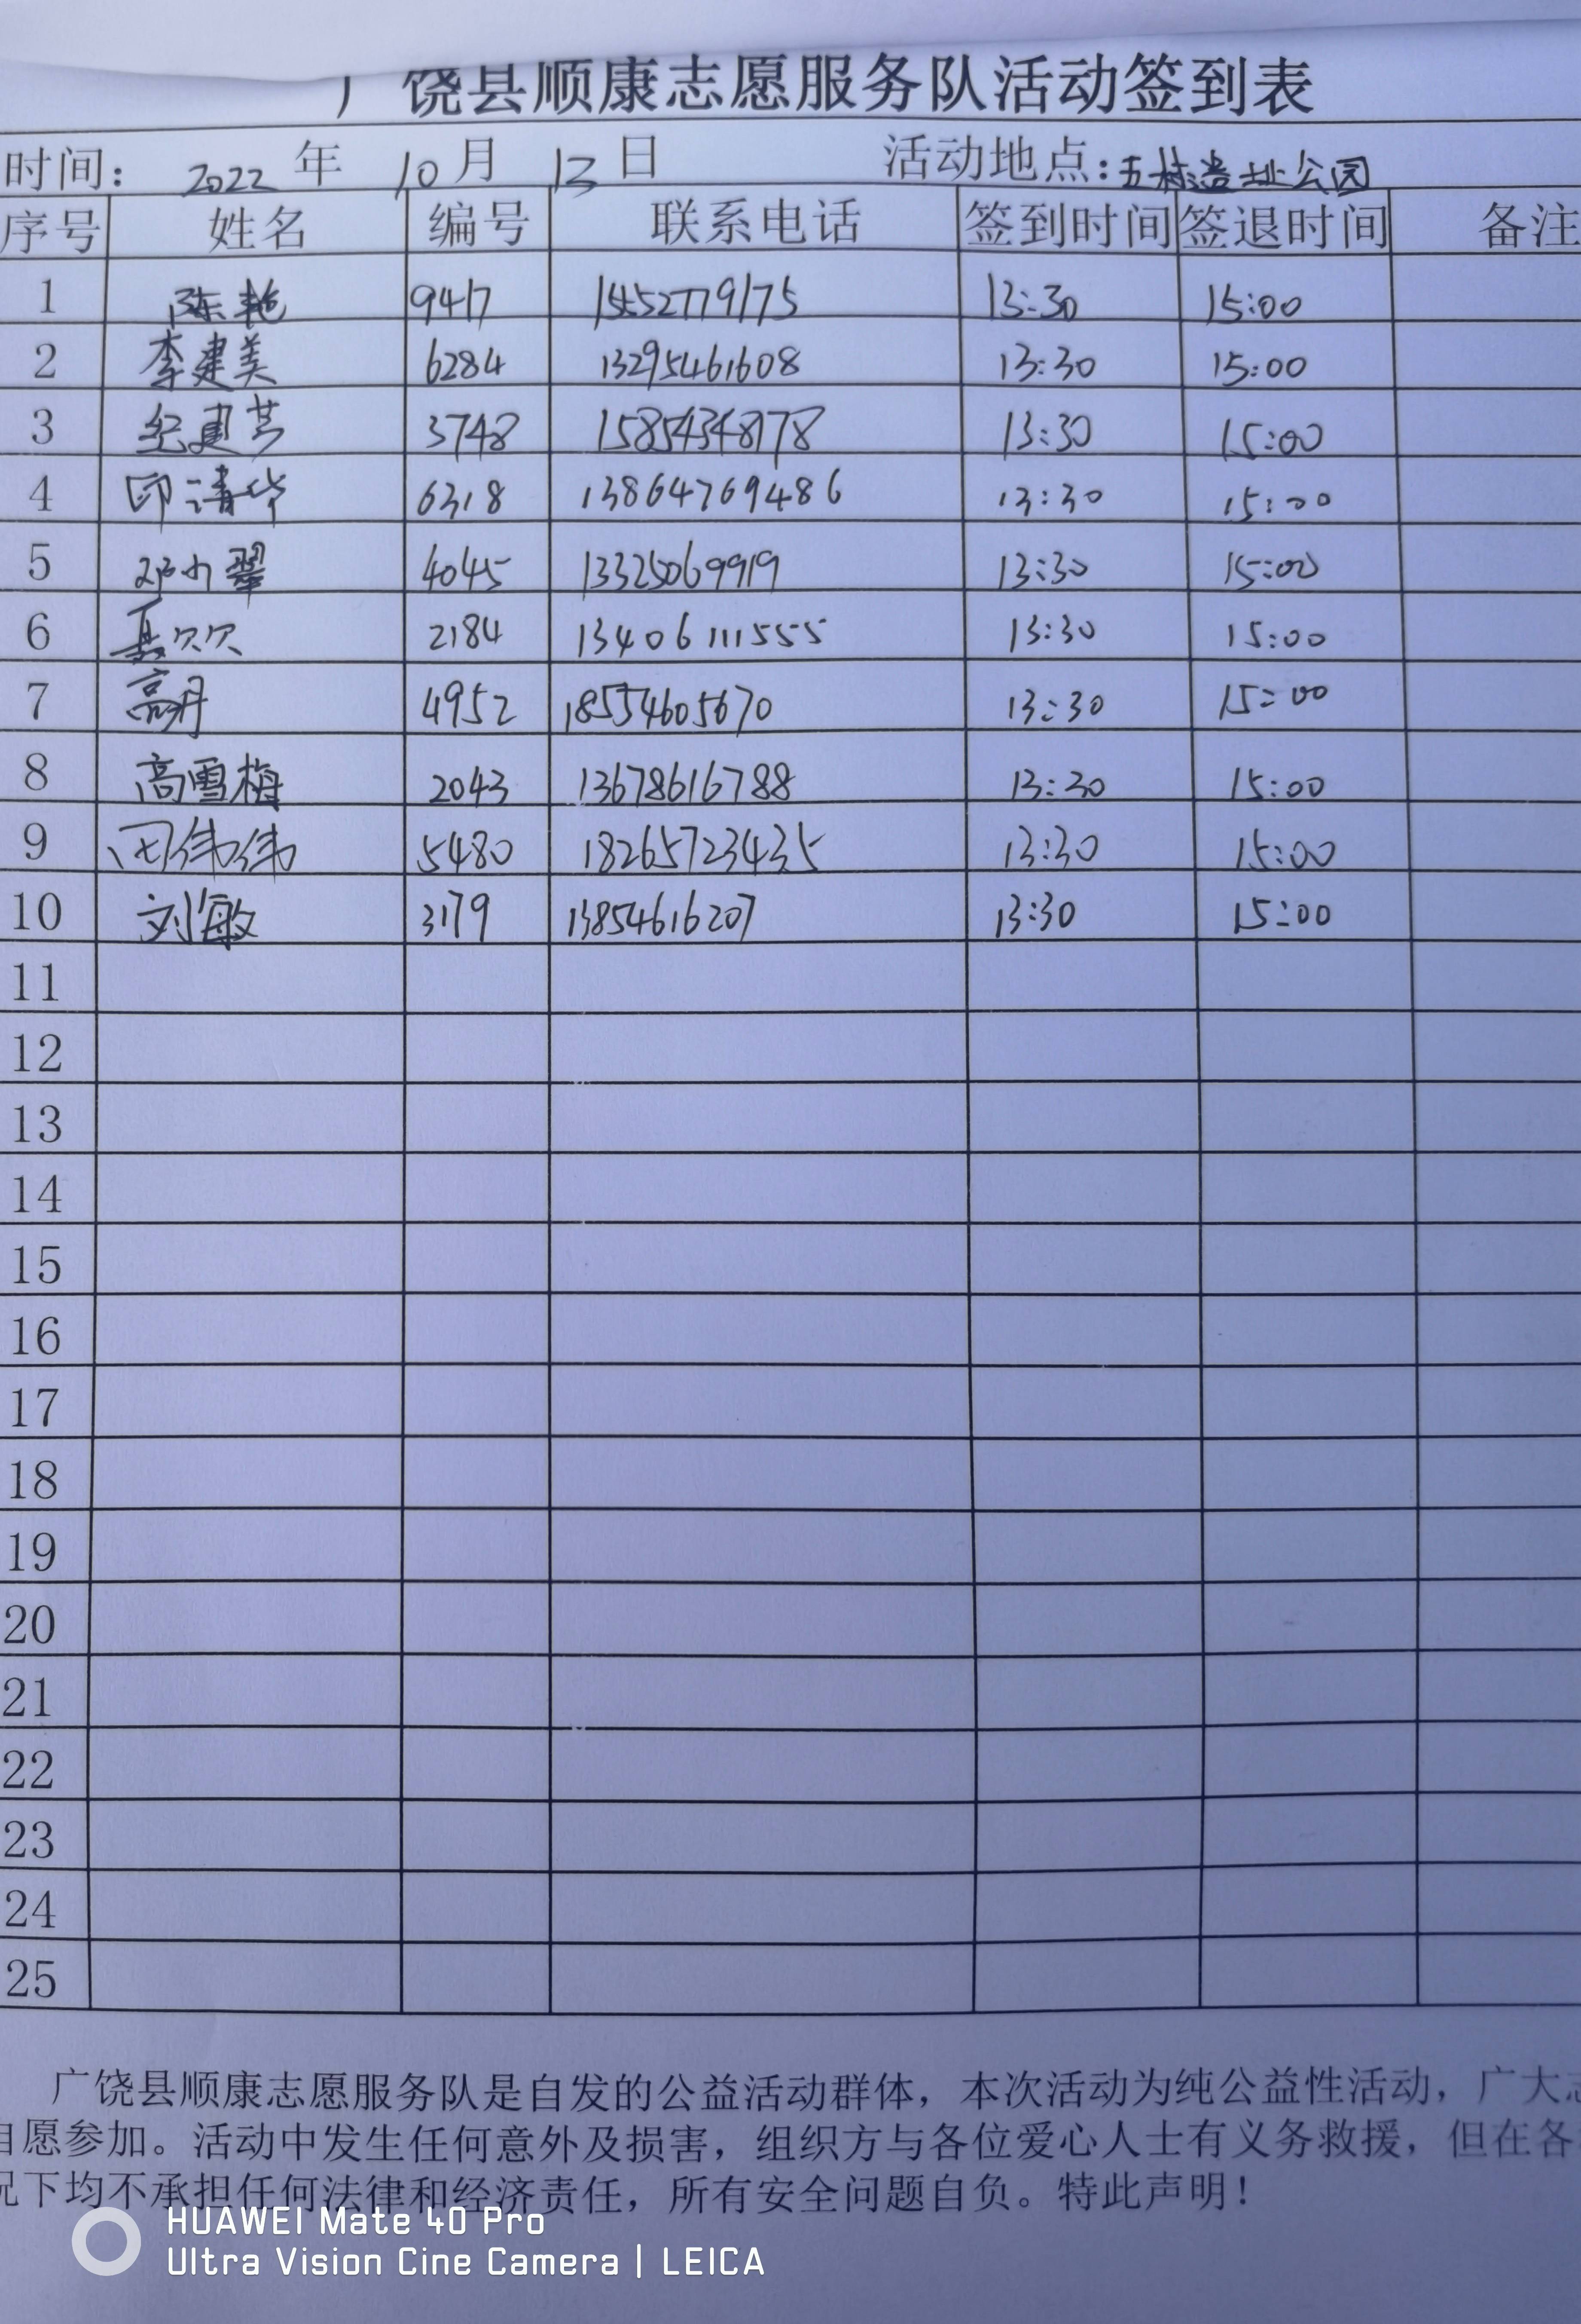 广饶县顺康志愿服务队活动签到表
时间： 2022 年 10 月 13 日 活动地点：五村遗址公园
序号 姓名 编号 联系电话 签到时间 签退时间 备注
1 陈艳 9417 13:30 15:00
2 李建美 6284 13295461608 13:30 15:00
3 纪建芸 3748 15854348178 13:30 15:00
4 印清华 6318 13864769486 13:30 15:00
5 邓小翠 4045 13325069919 13:30 15:00
6 2184 13406111555 13:30 15:00
7 高丹 4952 18554605670 13:30 15:00
8 高雪梅 2043 13678616788 13:30 15:00
9 伟伟 5480 18265723435 13:30 15:00
10 刘敏 3179 13854616207 13:30 15:00
11
12
13
14
15
16
17
18
19
20
21
22
23
24
25
广饶县顺康志愿服务队是自发的公益活动群体，本次活动为纯公益性活动，广大
自愿参加。活动中发生任何意外及损害，组织方与各位爱心人士有义务救援，但在各
况下均不承担任何法律和经济责任，所有安全问题自负。特此声明！
HUAWEI Mate 40 Pro
Ultra Vision Cine Camera | LEICA